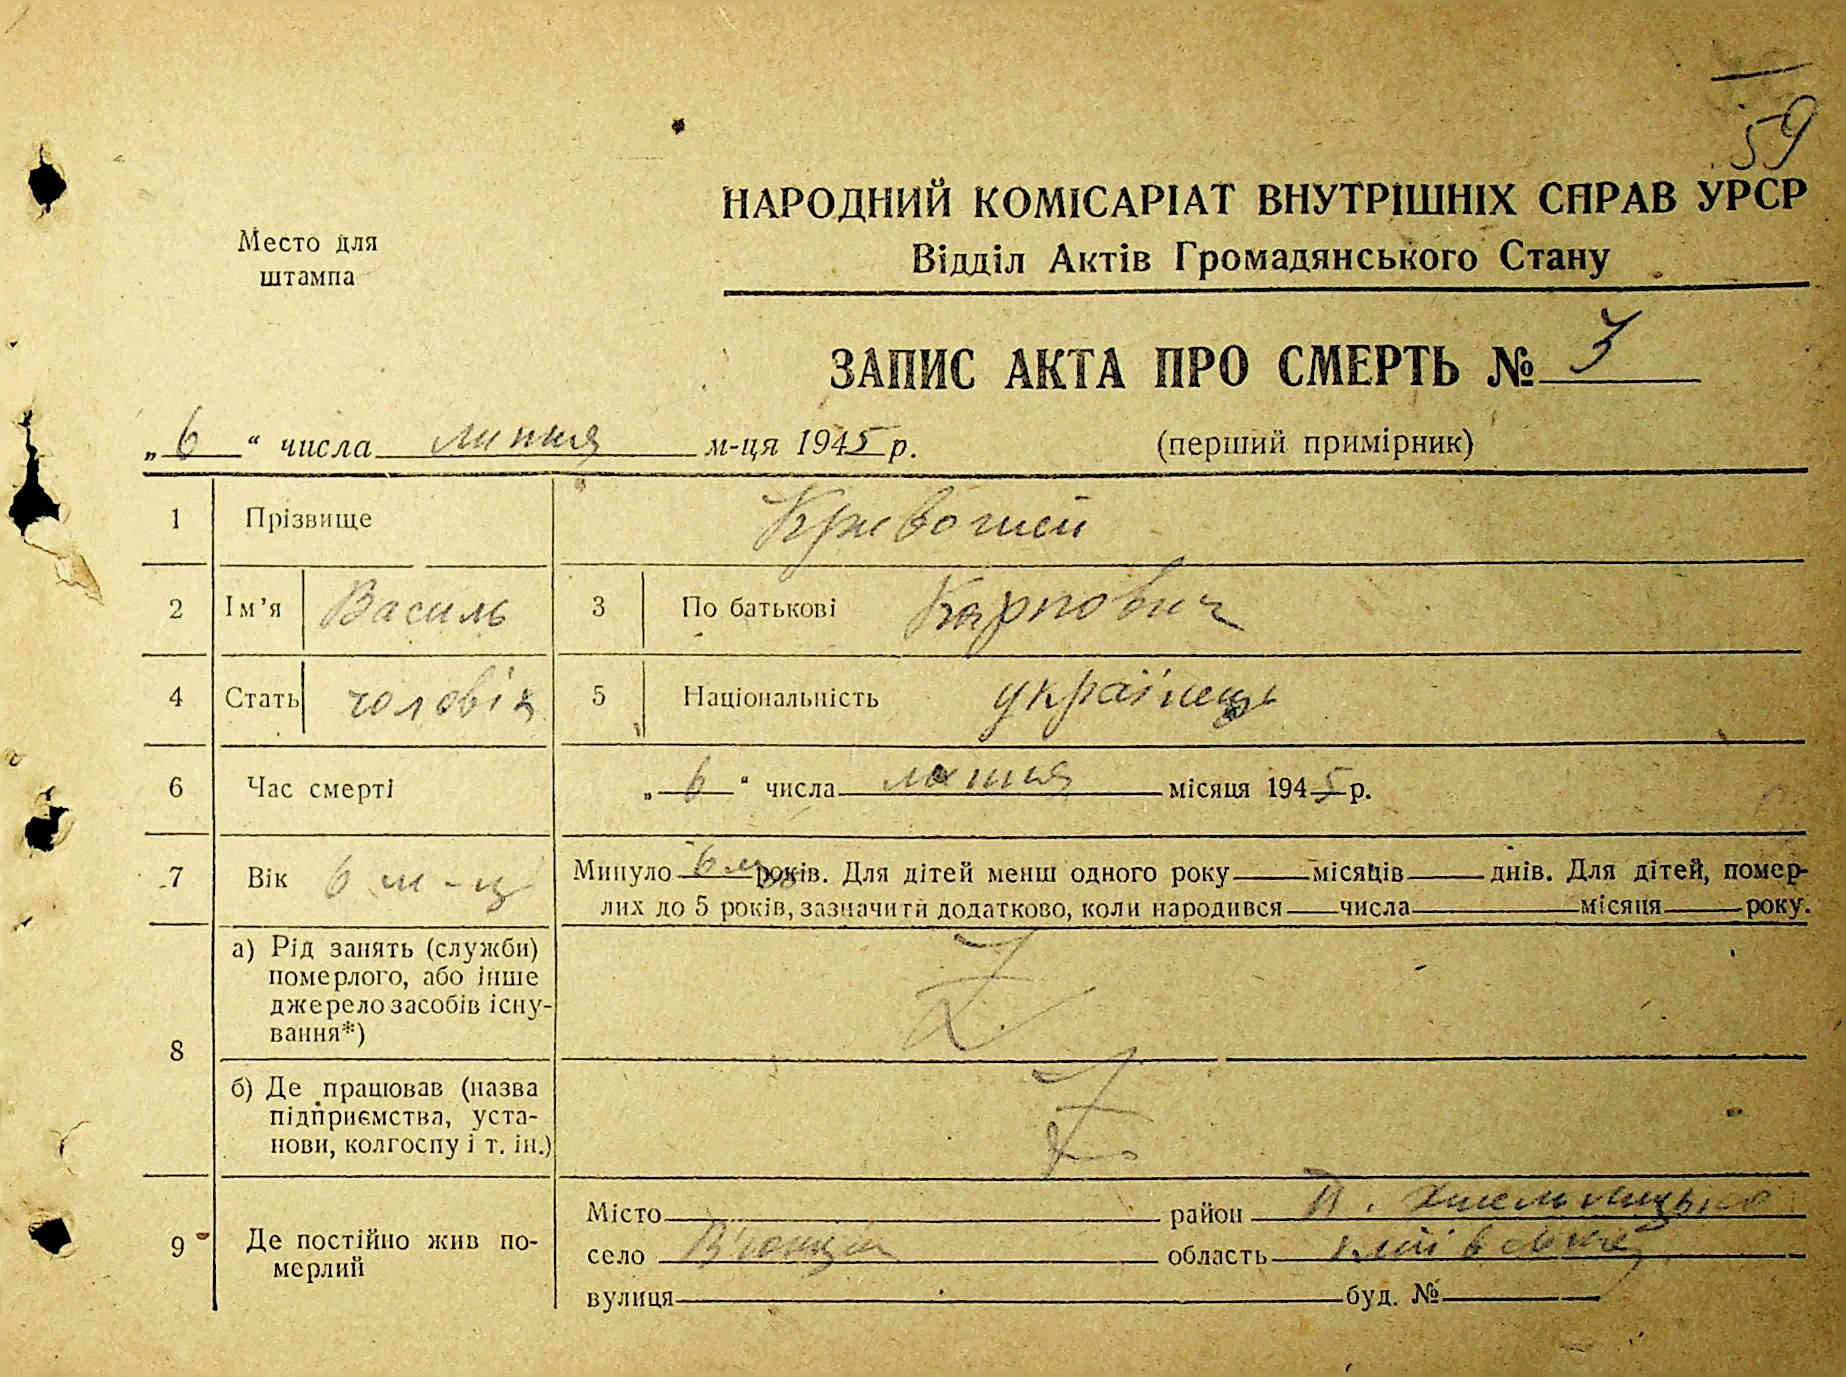 59
НАРОДНИЙ КОМІСАРІАТ ВНУТРІШНІХ СПРАВ УРСР
Відділ Актів Громадянського Стану
Место для
штампа
ЗАПИС АКТА ПРО СМЕРТЬ № 3
„ 6 “ числа липня м-ця 1945 р.
(перший примірник)
1 Прізвище Кривошей
2 Ім'я Василь 3 По батькові Карпович
4 Стать чоловік 5 Національність українець
6 Час смерті „ 6 “ числа липня місяця 1945 р.
7 Вік 6 м-ц Минуло 6 м років. Для дітей менш одного року місяців днів. Для дітей, помер-
лих до 5 років, зазначити додатково, коли народився числа місяця року.
8 а) Рід занять (служби)
померлого, або інше
джерело засобів існу-
вання*)
б) Де працював (назва
підприємства, уста-
нови, колгоспу і т. ін.)
9 Де постійно жив по-
мерлий
Місто район П. Хмельницько
село область Київська
вулиця буд. №